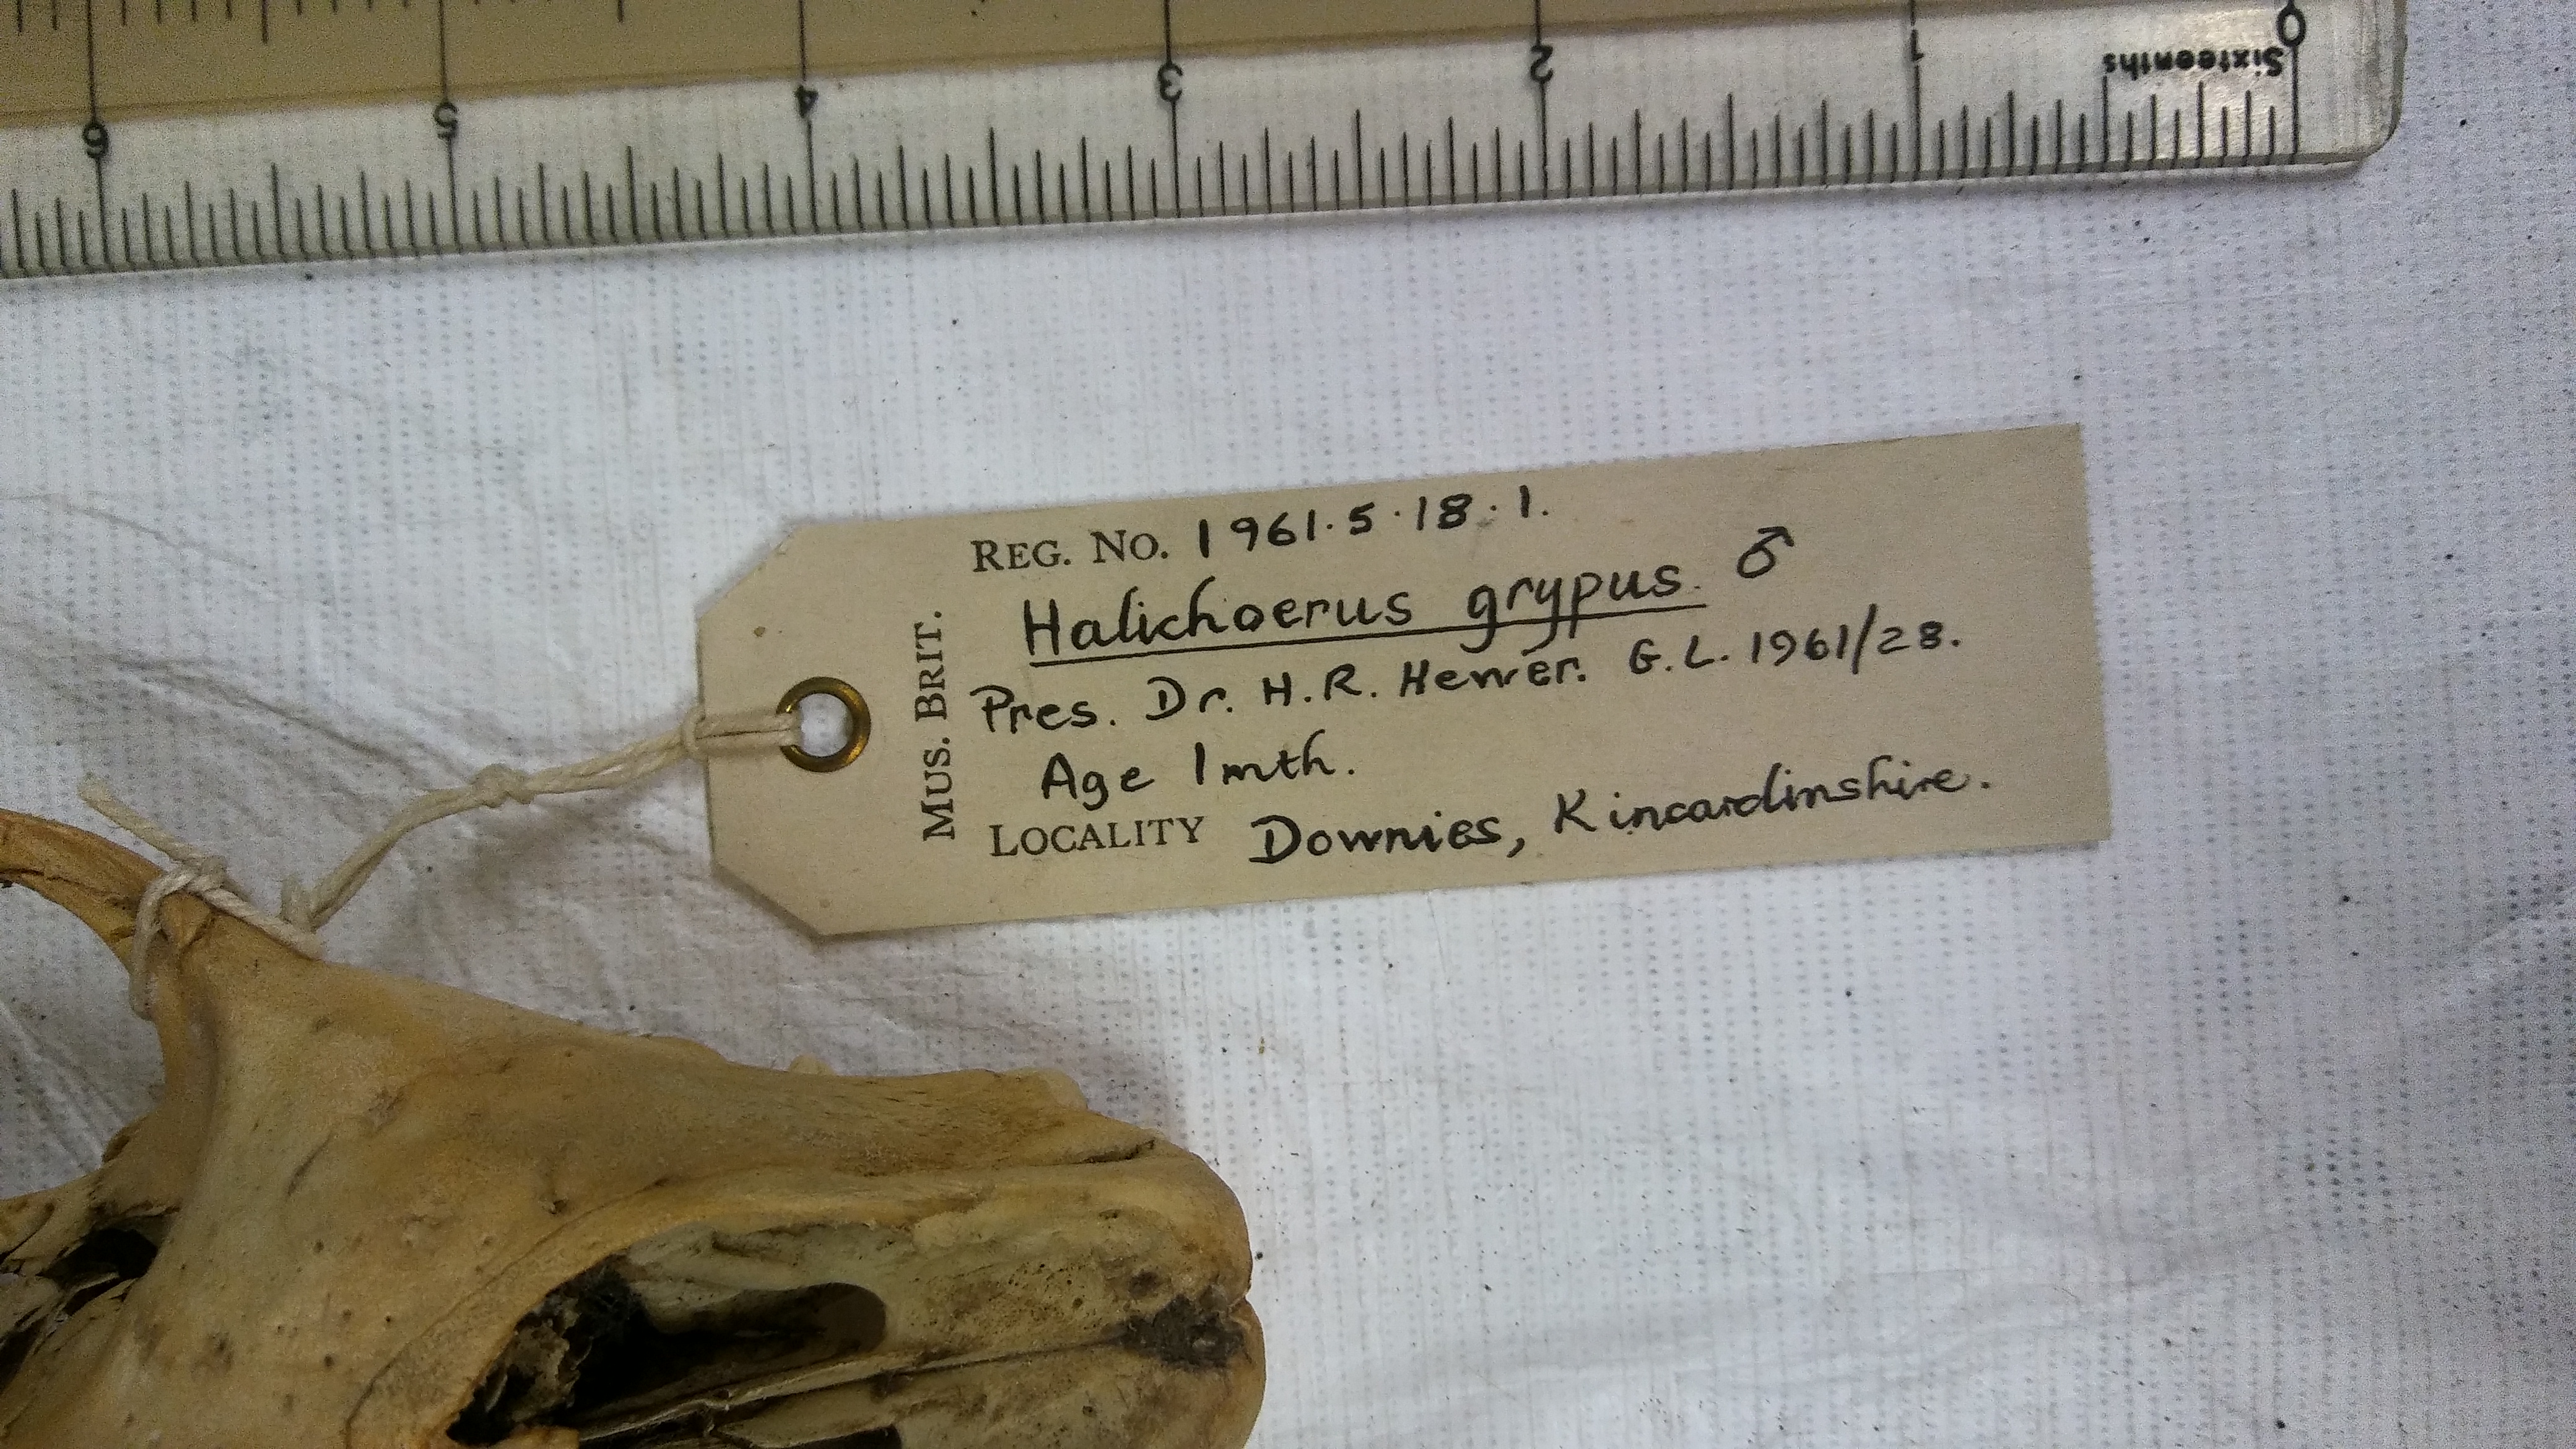 MUS. BRIT.
REG. NO. 1961.5.18.1.
Halichoerus grypus. ♂
Pres. Dr. H.R. Hewer. G.L. 1961/28.
Age 1 mth.
LOCALITY Downies, Kincardinshire.
6
5
4
3
2
1
0
Sixteenths